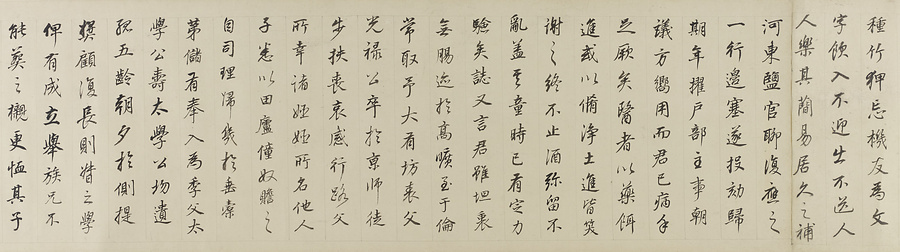 種竹狎忘機友為文
字飲入不迎出不送人
人樂其簡易居久之補
河東鹽官聊復應之
一行邊塞遂投劾歸
期年擢戶部主事朝
議方嚮用而君已病手
足厥矣醫者以藥餌
進或以備淨土進皆笑
謝之終不止酒弥留不
亂蓋其童時已有定力
驗矣誌又言君雖坦衷
無腸迹於高曠至于倫
常取予大有坊表父
光祿公卒於京師徒
步扶喪哀感行路父
所幸諸姬姬所名他人
子悉以田廬僮奴贍之
自司理歸幾於垂橐
第儲有奉入為季父太
學公壽太學公坳遺
孤五齡朝夕於側提
撰顧復長則授之學
俾有成立舉族兄不
能葬之櫬更恤其子